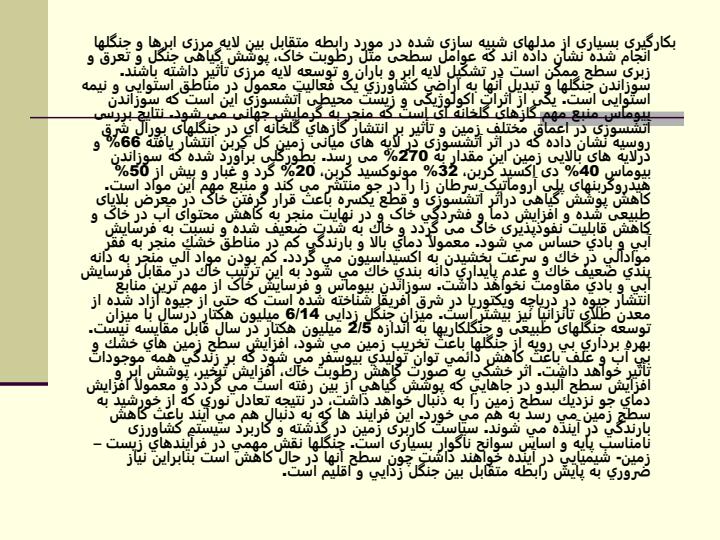 بکارگیری بسیاری از مدلهای شبیه سازی شده در مورد رابطه متقابل بین لایه مرزی ابرها و جنگلها
انجام شده نشان داده اند که عوامل سطحی مثل رطوبت خاک، پوشش گیاهی جنگل و تعرق و
زبری سطح ممکن است در تشکیل لایه ابر و باران و توسعه لایه مرزی تأثیر داشته باشند.
سوزاندن جنگلها و تبدیل آنها به اراضی کشاورزی یک فعالیت معمول در مناطق استوایی و نیمه
استوایی است. یکی از اثرات اکولوژیکی و زیست محیطی آتشسوزی این است که سوزاندن
بیوماس منبع مهم گازهای گلخانه ای است که منجر به گرمایش جهانی می شود. نتایج بررسی
آتشسوزی در اعماق مختلف زمین و تأثیر بر انتشار گازهای گلخانه ای در جنگلهای بورال شرق
روسیه نشان داده که در اثر آتشسوزی در لایه های میانی زمین کل کربن انتشار یافته 66% و
درلایه های بالایی زمین این مقدار به 270% می رسد. بطورکلی برآورد شده که سوزاندن
بیوماس 40% دی اکسید کربن، 32% مونوکسید کربن، 20% گرد و غبار و بیش از 50%
هیدروکربنهای پلی آروماتیک سرطان زا را در جو منتشر می کند و منبع مهم این مواد است.
کاهش پوشش گیاهی دراثر آتشسوزی و قطع یکسره باعث قرار گرفتن خاک در معرض بلایای
طبیعی شده و افزایش دما و فشردگی خاک و در نهایت منجر به کاهش محتوای آب در خاک و
کاهش قابلیت نفوذپذیری خاک می گردد و خاك به شدت ضعیف شده و نسبت به فرسایش
آبي و بادي حساس مي شود. معمولاً دماي بالا و بارندگي کم در مناطق خشك منجر به فقر
موادآلي در خاك و سرعت بخشیدن به اکسیداسیون مي گردد. کم بودن مواد آلي منجر به دانه
بندي ضعیف خاك و عدم پایداري دانه بندي خاك مي شود به این ترتیب خاك در مقابل فرسایش
آبي و بادي مقاومت نخواهد داشت. سوزاندن بیوماس و فرسایش خاک از مهم ترین منابع
انتشار جیوه در دریاچه ویکتوریا در شرق آفریقا شناخته شده است که حتی از جیوه آزاد شده از
معدن طلای تانزانیا نیز بیشتر است. میزان جنگل زدایی 6/14 میلیون هکتار درسال با میزان
توسعه جنگلهای طبیعی و جنگلکاریها به اندازه 2/5 میلیون هکتار در سال قابل مقایسه نیست.
بهره برداري بي رویه از جنگلها باعث تخریب زمین مي شود، افزایش سطح زمین هاي خشك و
بي آب و علف باعث کاهش دائمي توان تولیدي بیوسفر مي شود که بر زندگي همه موجودات
تأثیر خواهد داشت. اثر خشکي به صورت کاهش رطوبت خاك، افزایش تبخیر، پوشش ابر و
افزایش سطح آلبدو در جاهایي که پوشش گیاهي از بین رفته است مي گردد و معمولاً افزایش
دماي جو نزدیك سطح زمین را به دنبال خواهد داشت، در نتیجه تعادل نوري که از خورشید به
سطح زمین مي رسد به هم مي خورد. این فرایند ها که به دنبال هم مي آیند باعث کاهش
بارندگي در آینده مي شوند. سیاست کاربری زمین در گذشته و کاربرد سیستم کشاورزی
نامناسب پایه و اساس سوانح ناگوار بسیاری است. جنگلها نقش مهمي در فرآیندهاي زیست –
زمین- شیمیایي در آینده خواهند داشت چون سطح آنها در حال کاهش است بنابراین نیاز
ضروري به پایش رابطه متقابل بین جنگل زدایي و اقلیم است.